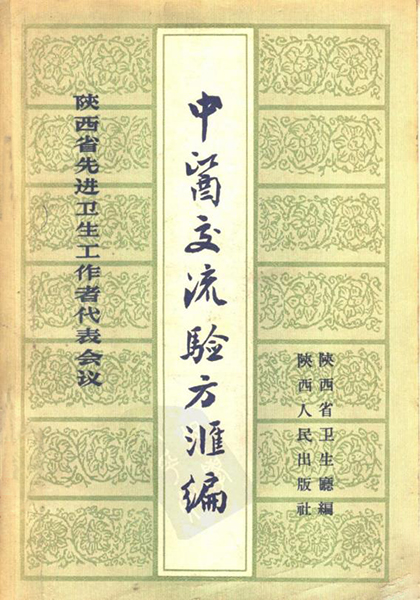 陕西省先进卫生工作者代表会议
中醫交流驗方滙编
陝西省卫生廳編
陝西人民出版社